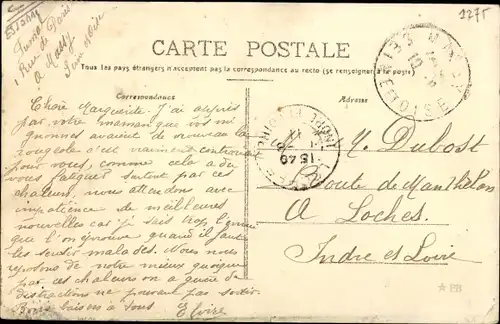 2275
Essonne
Junior
1 Rue de Paris
à Massy
Seine et Oise
CARTE POSTALE
Tous les pays étrangers n'acceptent pas la correspondance au recto (se renseigner à la poste)
Correspondance
Adresse
MASSY
SEINE-ET-OISE
15 40
INDRE-ET-LOIRE
Chère Marguerite. J'ai appris
par votre maman que vos mi
gnonnes avaient de nouveau la
rougeole c'est vraiment contrariant
pour vous, comme cela a dû
vous fatiguer surtout par ces
chaleurs, nous attendons avec
impatience de meilleures
nouvelles car je sais trop l'ennui
que l'on éprouve quand il faut
les sentir malades. Nous nous
reposons de notre mieux quoique
par ces chaleurs on a guère de
distractions ne pouvant pas sortir.
Bons baisers à tous Elvire
M. Dubost
Route de Manthelan
A Loches.
Indre et Loire
PB